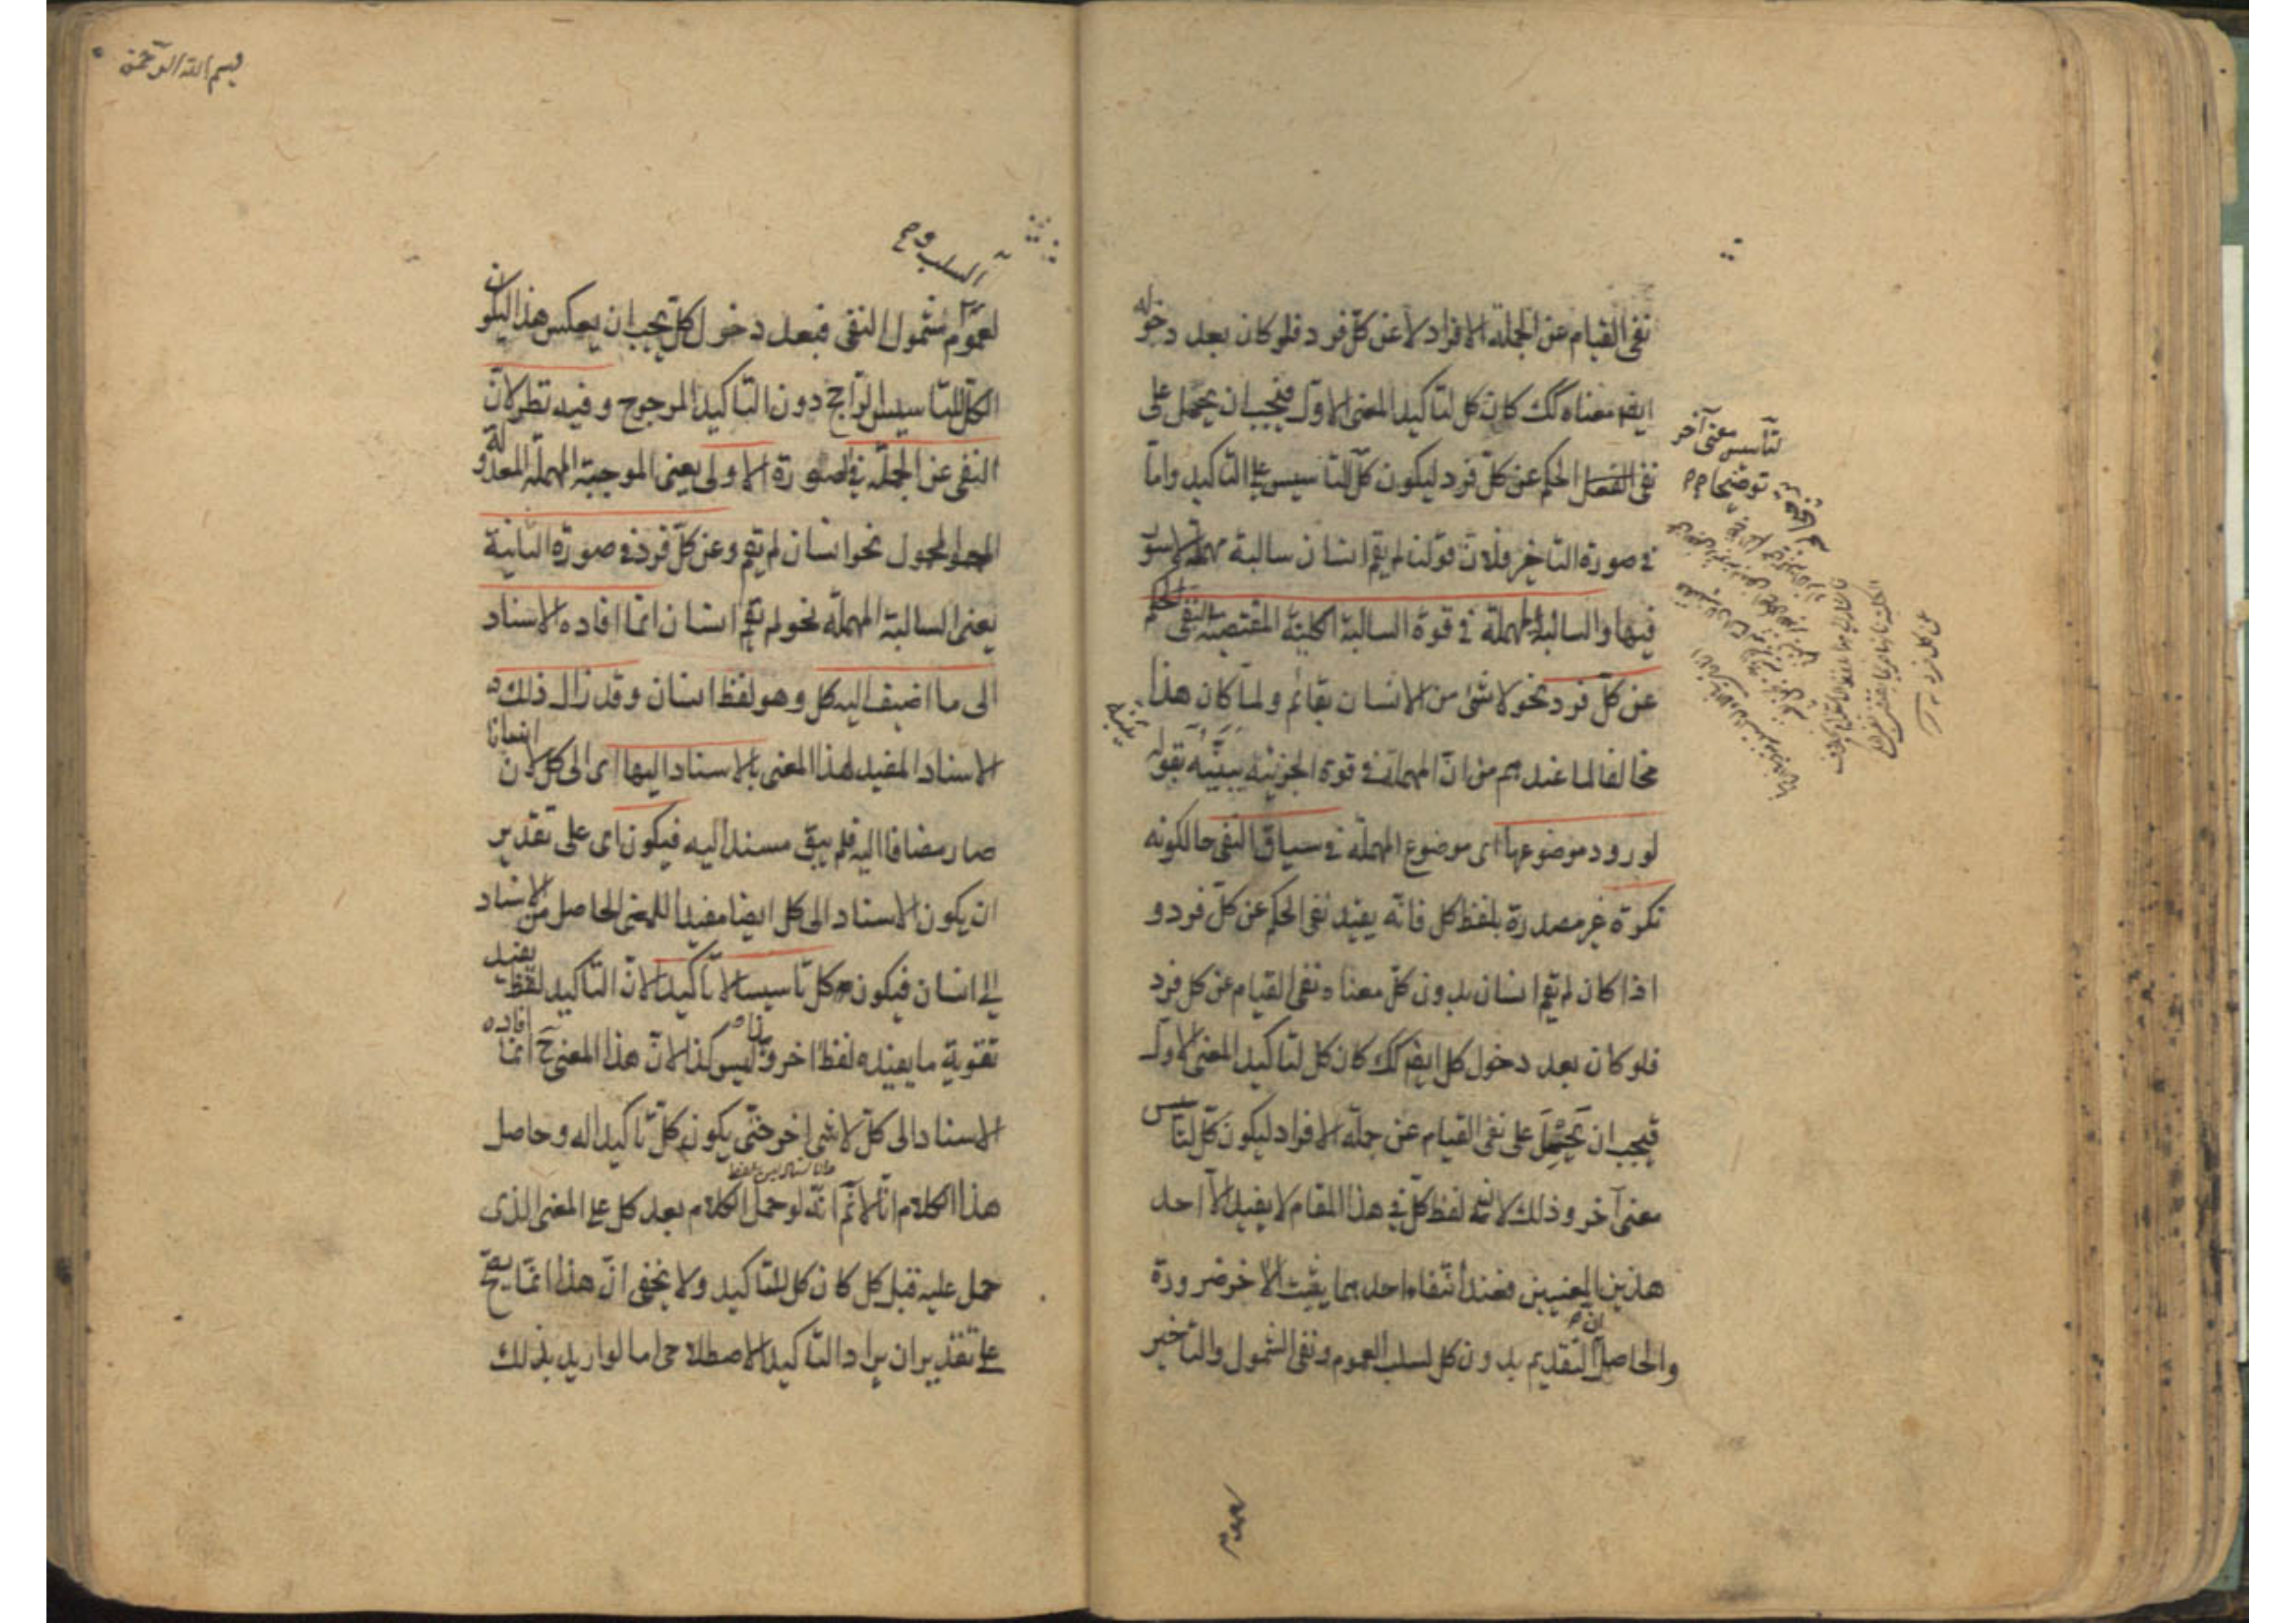 نفى القيام عن الجملة الافراد لا عن كلّ فرد فلو كان بعد دخوله
ايضا معناه كك كان كل لتأكيد المعنى الاول فيجب ان يحمل على
نفى الحكم عن كلّ فرد ليكون كلّ لتأسيس على التاكيد وامّا
فى صورة التاخير فلانّ قولنا لم يقم انسان سالبة مهملة لا سور
فيها والسالبة المهملة فى قوة السالبة الكلية المقتضية النفى الحكم
عن كلّ فرد نحو لا شئ من الانسان بقائم ولما كان هذا
مخالفا لما عندهم من انّ المهملة فى قوة الجزئية بيّنه بقوله
لورود موضوعها اى موضوع المهملة فى سياق النفى حال كونه
نكرة غير مصدرة بلفظ كل فانّه يفيد نفى الحكم عن كلّ فرد و
اذا كان لم يقم انسان بدون كلّ معناه نفى القيام عن كل فرد
فلو كان بعد دخول كل ايضا كك كان كل لتاكيد المعنى الاول
فيجب ان يحمل على نفى القيام عن جملة الافراد ليكون كلّ لتأسيس
معنى آخر وذلك لان لفظ كلّ فى هذا المقام لا يفيد الّا احد
هذين المعنيين فعند انتفاء احدهما يثبت الآخر ضرورة
والحاصل ان التقديم بدون كل لسلب العموم ونفى الشمول والتاخير
لتأسيس معنى آخر
توضيحا
بسم الله الرحمن
السلب و
لعموم شمول النفى فبعد دخول كل يجب ان يعكس هذا ليكون
الكلّ للتاسيس الراجح دون التاكيد المرجوح وفيه نظر لانّ
النفى عن الجملة فى الصورة الاولى يعنى الموجبة المهملة المعدولة
المحمول نحو انسان لم يقم وعن كلّ فرد فى صورة الثانية
يعنى السالبة المهملة نحو لم يقم انسان انّما افاده الاسناد
الى ما اضيف اليه كل وهو لفظ انسان وقد زال ذلك
الاسناد المفيد لهذا المعنى بالاسناد اليها اى الى كل لان انسانا
صار مضافا اليه فلم يبق مسندا اليه فيكون اى على تقدير
ان يكون الاسناد الى كل ايضا مفيدا للمعنى الحاصل من الاسناد
الى انسان فيكون كلّ تاسيسا لا تاكيدا لانّ التاكيد لفظ يفيد
تقوية ما يفيده لفظ آخر وليس كذا لانّ هذا المعنى ح انّما افاده
الاسناد الى كلّ لا شئ اخر حتّى يكون كلّ تاكيدا له وحاصل
هذا الكلام انّا لا نم انّه لو حمل الكلام بعد كل على المعنى الذى
حمل عليه قبل كل كان كل للتاكيد ولا يخفى انّ هذا انّما يصحّ
على تقدير ان يراد التاكيد الاصطلاحى اما لو اريد بذلك